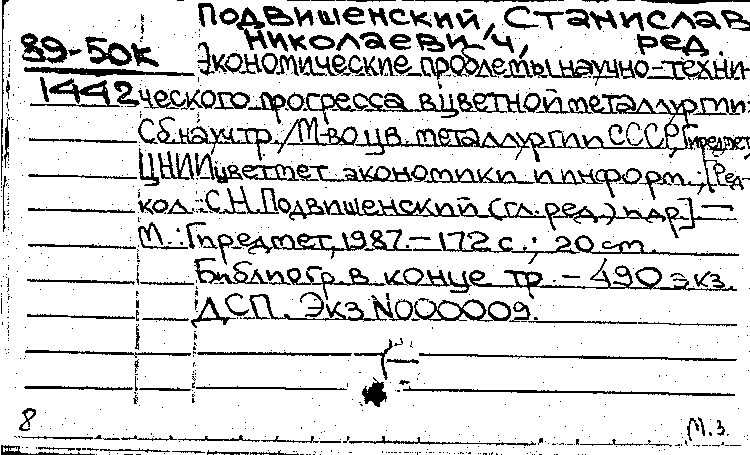 Подвишенский, Станислав
Николаевич, ред.
89-50к
1442
Экономические проблемы научно-техни-
ческого прогресса в цветной металлургии:
Сб. науч. тр. / М-во цв. металлургии СССР, Гиредмет,
ЦНИИцветмет экономики и информ.; [Ред-
кол.: С.Н. Подвишенский (гл. ред.) и др.] —
М.: Гиредмет, 1987. — 172 с.; 20 см.
Библиогр. в конце тр. — 490 экз.
ДСП. Экз N000009.
8
М.З.